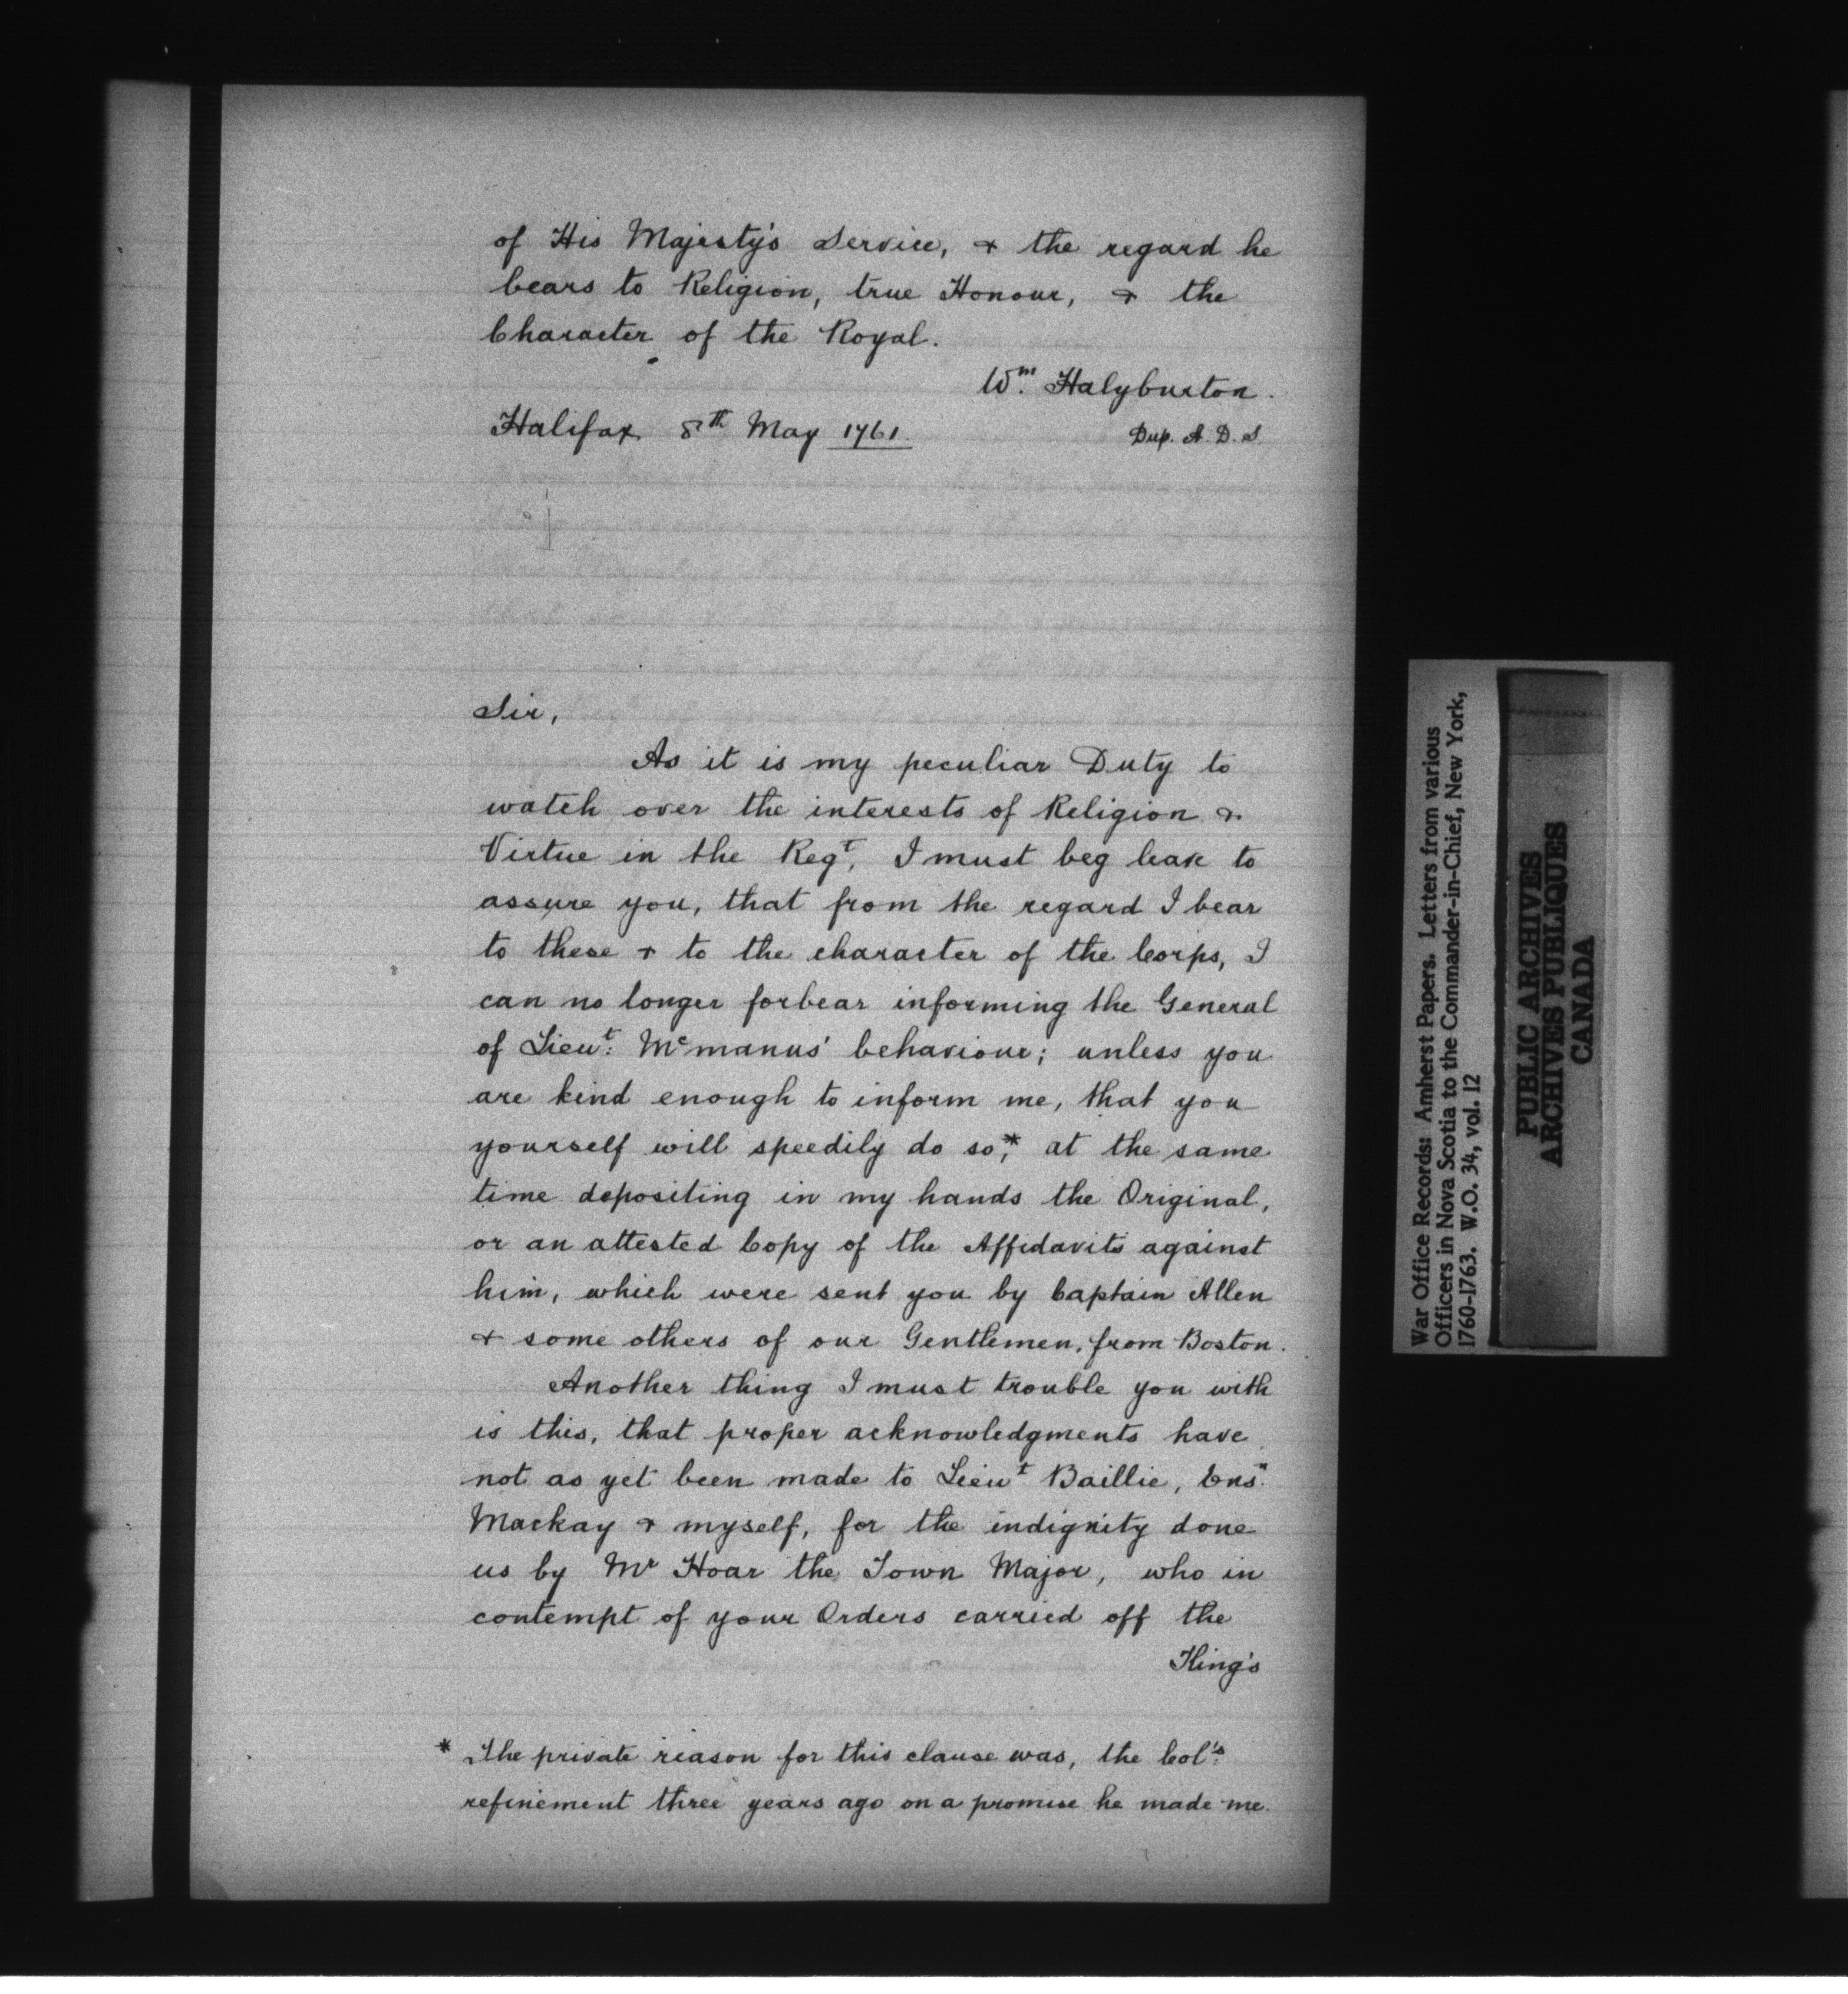 of His Majesty's Service, & the regard he
bears to Religion, true Honour, & the
Character of the Royal.
Wm. Halyburton.
Halifax 8th May 1761.
Dup. A. D. S.
Sir,
As it is my peculiar Duty to
watch over the interests of Religion &
Virtue in the Regt, I must beg leave to
assure you, that from the regard I bear
to these & to the character of the Corps, I
can no longer forbear informing the General
of Lieut: Mcmanus' behaviour; unless you
are kind enough to inform me, that you
yourself will speedily do so;* at the same
time depositing in my hands the Original,
or an attested Copy of the Affidavits against
him, which were sent you by Captain Allen
& some others of our Gentlemen, from Boston.
Another thing I must trouble you with
is this, that proper acknowledgments have
not as yet been made to Lieut Baillie, Ensn.
Mackay & myself, for the indignity done
us by Mr Hoar the Town Major, who in
contempt of your Orders carried off the
King's
* The private reason for this clause was, the Col's:
refinement three years ago on a promise he made me.
War Office Records: Amherst Papers. Letters from various
Officers in Nova Scotia to the Commander-in-Chief, New York,
1760-1763. W.O. 34, vol. 12
PUBLIC ARCHIVES
ARCHIVES PUBLIQUES
CANADA